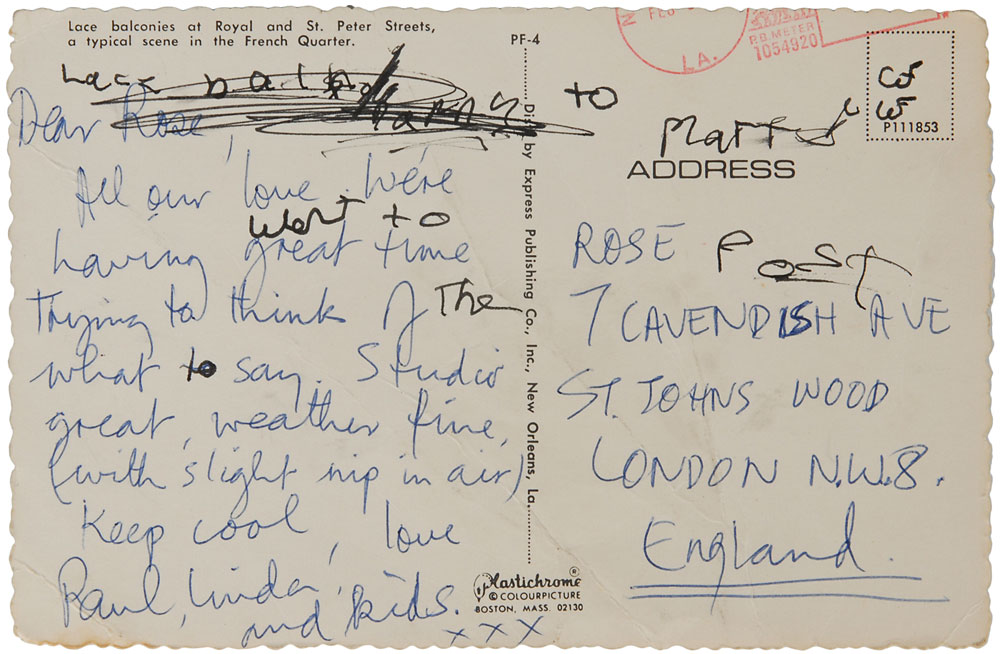 Lace balconies at Royal and St. Peter Streets,
a typical scene in the French Quarter.
PF-4
Lace
to
Dear Rose,
All our love. We're
went to
having great time
trying to think of The
what to say. Studio
great, weather fine,
(with slight nip in air)
Keep cool, love
Paul, Linda,
and kids.
x x x
Dist. by Express Publishing Co., Inc., New Orleans, La.
Plastichrome®
© COLOURPICTURE
BOSTON, MASS. 02130
FEB
LA.
P.B. METER
1054920
P111853
ADDRESS
ROSE Post
7 CAVENDISH AVE
ST. JOHNS WOOD
LONDON N.W.8.
England.